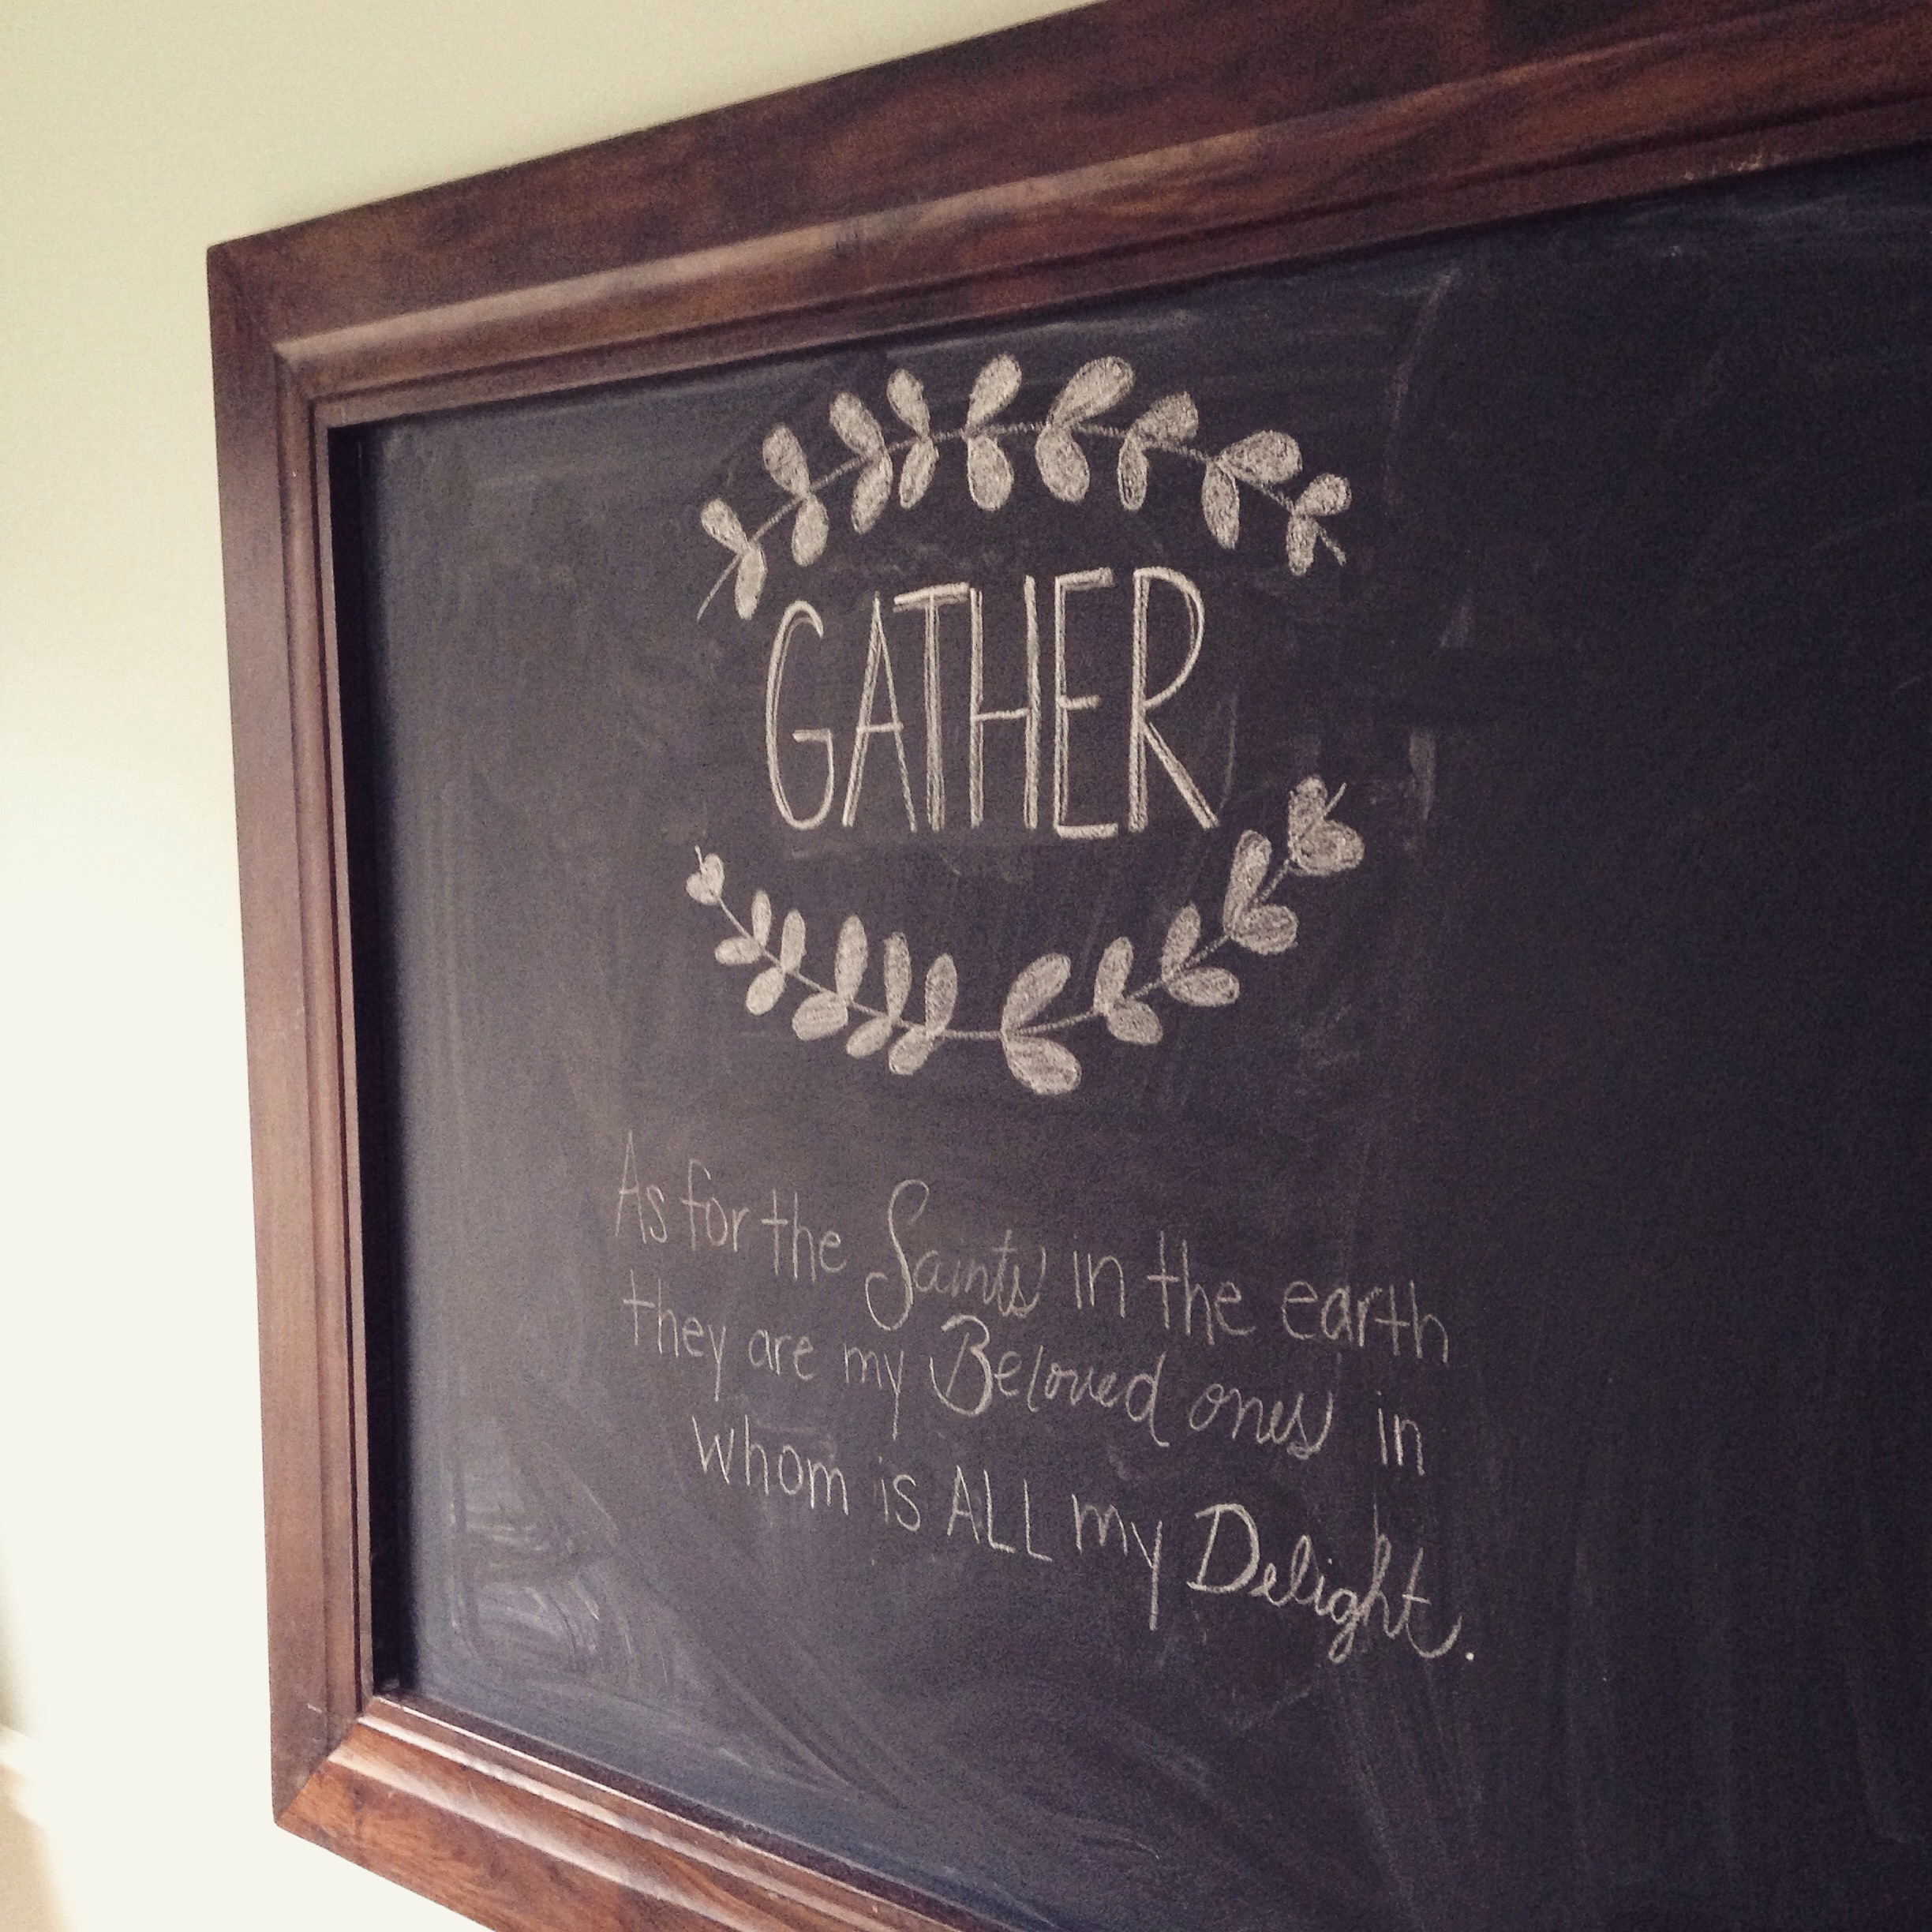 GATHER
As for the Saints in the earth
they are my Beloved ones in
whom is ALL my Delight.